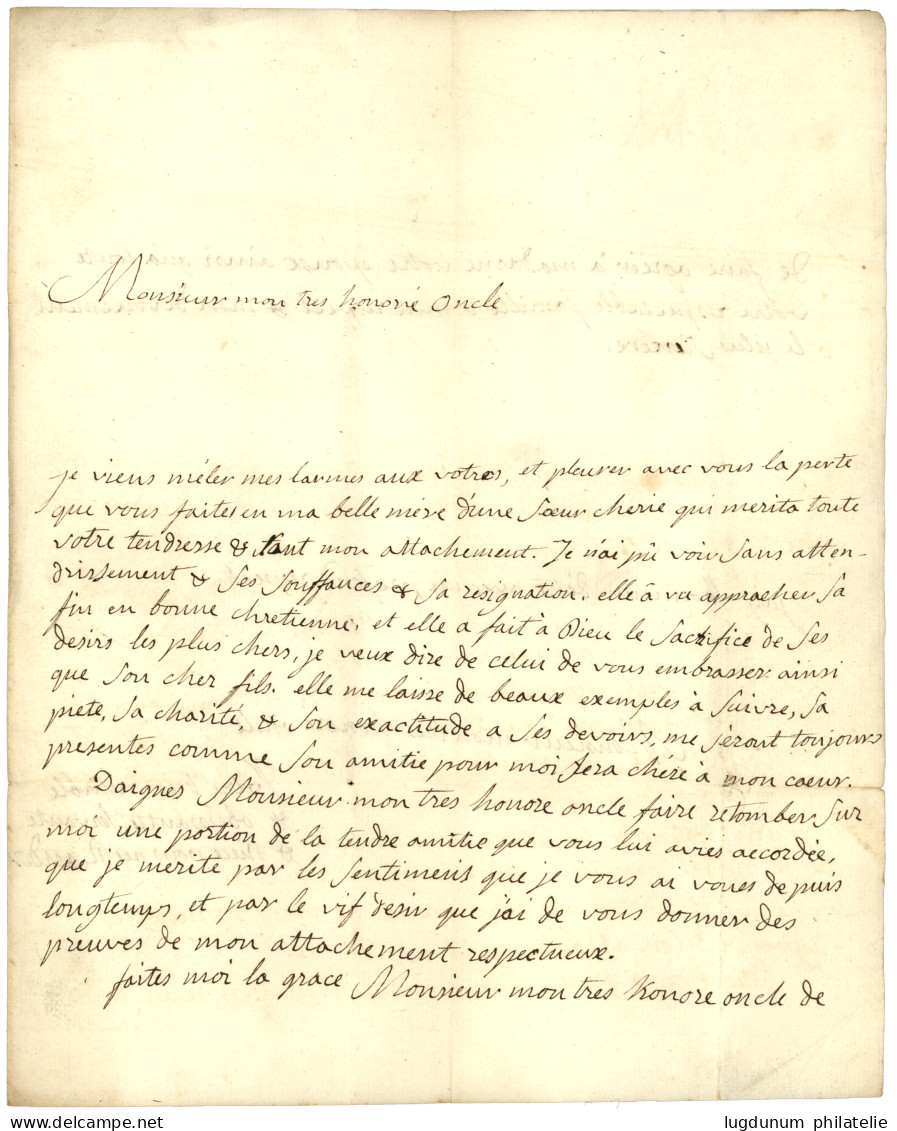 Monsieur mon tres honoré oncle
je viens méler mes larmes aux votres, et pleurer avec vous la perte
que vous faites en ma belle mére d'une sœur cherie qui merita toute
votre tendresse & tant mon attachement. Je n'ai pû voir sans atten-
drissement & ses souffances & sa resignation. elle â vu approcher sa
fin en bonne chretienne, et elle a fait à Dieu le sacrifice de ses
desirs les plus chers, je veux dire de celui de vous embrasser ainsi
que son cher fils. elle me laisse de beaux exemples à suivre, sa
pieté, sa charité, & son exactitude a ses devoirs, me séront toujours
presentes comme son amitie pour moi sera chére à mon coeur.
Daignes Monsieur mon tres honore oncle faire retomber sur
moi une portion de la tendre amitie que vous lui aviés accordée,
que je merite par les sentimens que je vous ai voues depuis
longtemps, et par le vif desir que j'ai de vous donner des
preuves de mon attachement respectueux.
faites moi la grace Monsieur mon tres honore oncle de
www.delcampe.net
lugdunum philatelie